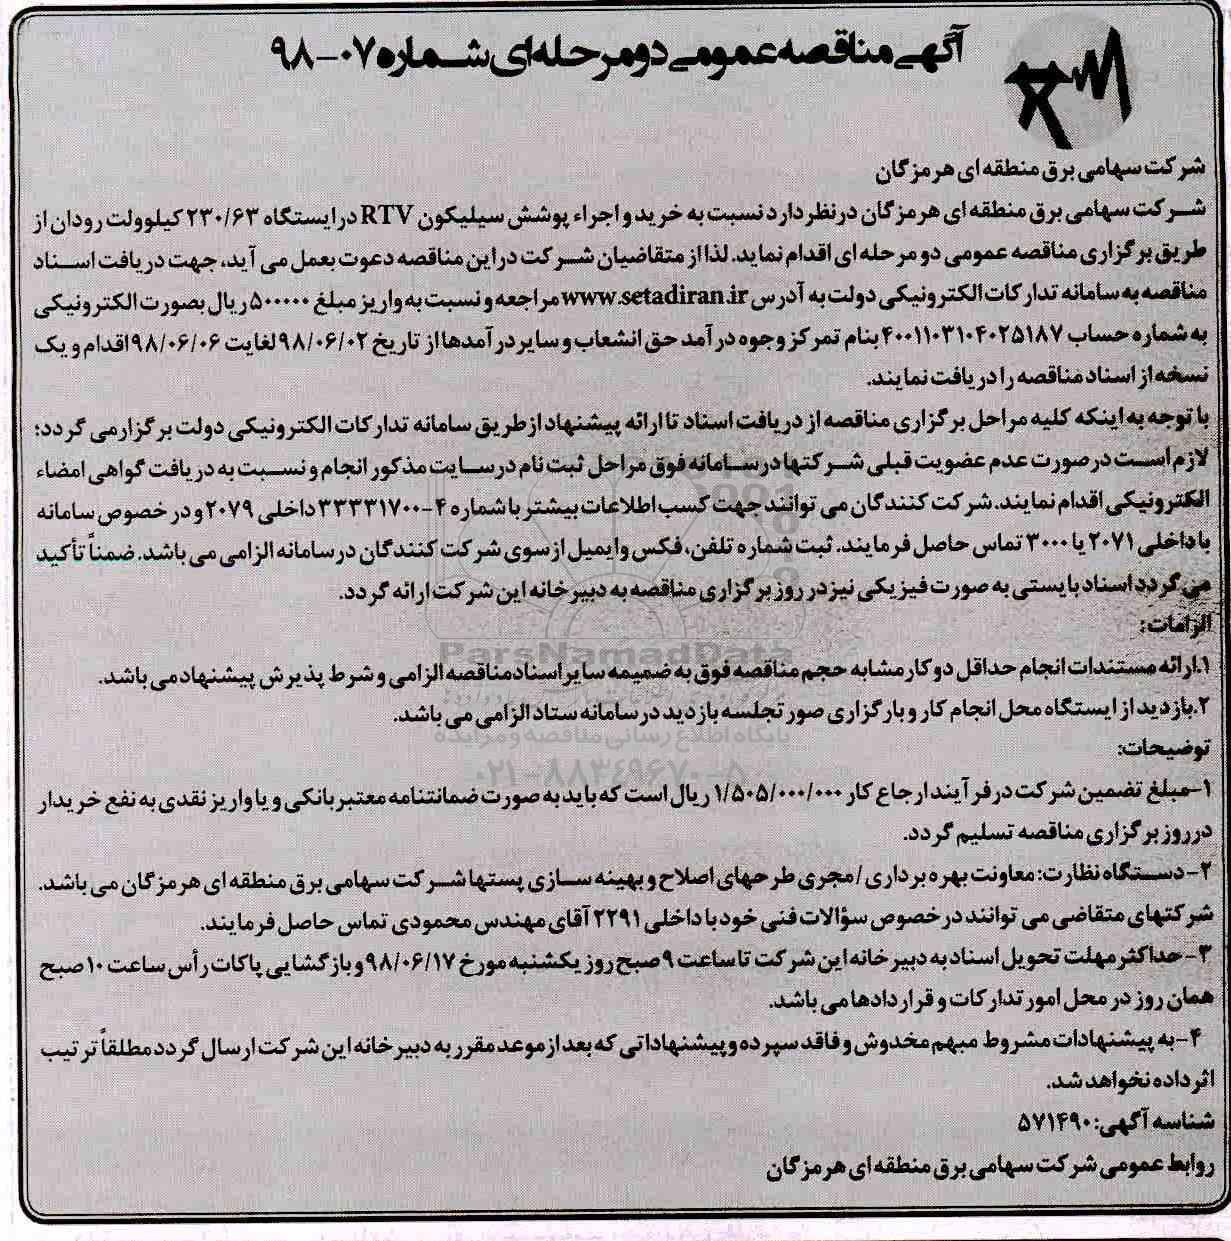 آگهی مناقصه عمومی دو مرحله ای شماره ۰۷-۹۸
شرکت سهامی برق منطقه ای هرمزگان
شرکت سهامی برق منطقه ای هرمزگان در نظر دارد نسبت به خرید و اجراء پوشش سیلیکون RTV در ایستگاه ۲۳۰/۶۳ کیلوولت رودان از
طریق برگزاری مناقصه عمومی دو مرحله ای اقدام نماید. لذا از متقاضیان شرکت در این مناقصه دعوت بعمل می آید، جهت دریافت اسناد
مناقصه به سامانه تدارکات الکترونیکی دولت به آدرس www.setadiran.ir مراجعه و نسبت به واریز مبلغ ۵۰۰۰۰۰ ریال بصورت الکترونیکی
به شماره حساب ۴۰۰۱۱۰۳۱۰۴۰۲۵۱۸۷ بنام تمرکز وجوه درآمد حق انشعاب و سایر درآمدها از تاریخ ۹۸/۰۶/۰۲ لغایت ۹۸/۰۶/۰۶ اقدام و یک
نسخه از اسناد مناقصه را دریافت نمایند.
با توجه به اینکه کلیه مراحل برگزاری مناقصه از دریافت اسناد تا ارائه پیشنهاد از طریق سامانه تدارکات الکترونیکی دولت برگزار می گردد؛
لازم است در صورت عدم عضویت قبلی شرکتها در سامانه فوق مراحل ثبت نام در سایت مذکور انجام و نسبت به دریافت گواهی امضاء
الکترونیکی اقدام نمایند. شرکت کنندگان می توانند جهت کسب اطلاعات بیشتر با شماره ۴-۳۳۳۳۱۷۰۰ داخلی ۲۰۷۹ و در خصوص سامانه
با داخلی ۲۰۷۱ یا ۳۰۰۰ تماس حاصل فرمایند. ثبت شماره تلفن، فکس و ایمیل از سوی شرکت کنندگان در سامانه الزامی می باشد. ضمناً تأکید
می گردد اسناد بایستی به صورت فیزیکی نیز در روز برگزاری مناقصه به دبیرخانه این شرکت ارائه گردد.
الزامات:
ParsNamadData
۱.ارائه مستندات انجام حداقل دو کار مشابه حجم مناقصه فوق به ضمیمه سایر اسناد مناقصه الزامی و شرط پذیرش پیشنهاد می باشد.
۲.بازدید از ایستگاه محل انجام کار و بارگزاری صورتجلسه بازدید در سامانه ستاد الزامی می باشد.
پایگاه اطلاع رسانی مناقصه و مزایده
توضیحات:
۰۲۱-۸۸۳۴۹۶۷۰-۵
۱-مبلغ تضمین شرکت در فرآیند ارجاع کار ۱/۵۰۵/۰۰۰/۰۰۰ ریال است که باید به صورت ضمانتنامه معتبر بانکی و یا واریز نقدی به نفع خریدار
در روز برگزاری مناقصه تسلیم گردد.
۲-دستگاه نظارت: معاونت بهره برداری / مجری طرحهای اصلاح و بهینه سازی پستها شرکت سهامی برق منطقه ای هرمزگان می باشد.
شرکتهای متقاضی می توانند در خصوص سؤالات فنی خود با داخلی ۲۲۹۱ آقای مهندس محمودی تماس حاصل فرمایند.
۳-حداکثر مهلت تحویل اسناد به دبیرخانه این شرکت تا ساعت ۹ صبح روز یکشنبه مورخ ۹۸/۰۶/۱۷ و بازگشایی پاکات رأس ساعت ۱۰ صبح
همان روز در محل امور تدارکات و قراردادها می باشد.
۴-به پیشنهادات مشروط مبهم مخدوش و فاقد سپرده و پیشنهاداتی که بعد از موعد مقرر به دبیرخانه این شرکت ارسال گردد مطلقاً ترتیب
اثر داده نخواهد شد.
شناسه آگهی: ۵۷۱۴۹۰
روابط عمومی شرکت سهامی برق منطقه ای هرمزگان